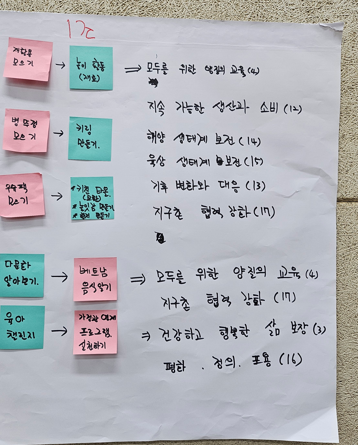 1조
모으기
놀이 활동
(재료)
⇒ 모두를 위한 양질의 교육 (4)
지속 가능한 생산과 소비 (12)
병 뚜껑
모으기
키링
만들기.
해양 생태계 보전 (14)
육상 생태계 보전 (15)
기후 변화와 대응 (13)
지구촌 협력 강화 (17)
우유팩
모으기
만들기
만들기
다문화
알아보기.
베트남
음식알기
⇒ 모두를 위한 양질의 교육 (4)
지구촌 협력 강화 (17)
육아
챌린지
가정과 연계
프로그램
실천하기
⇒ 건강하고 행복한 삶 보장 (3)
평화 . 정의 . 포용 (16)